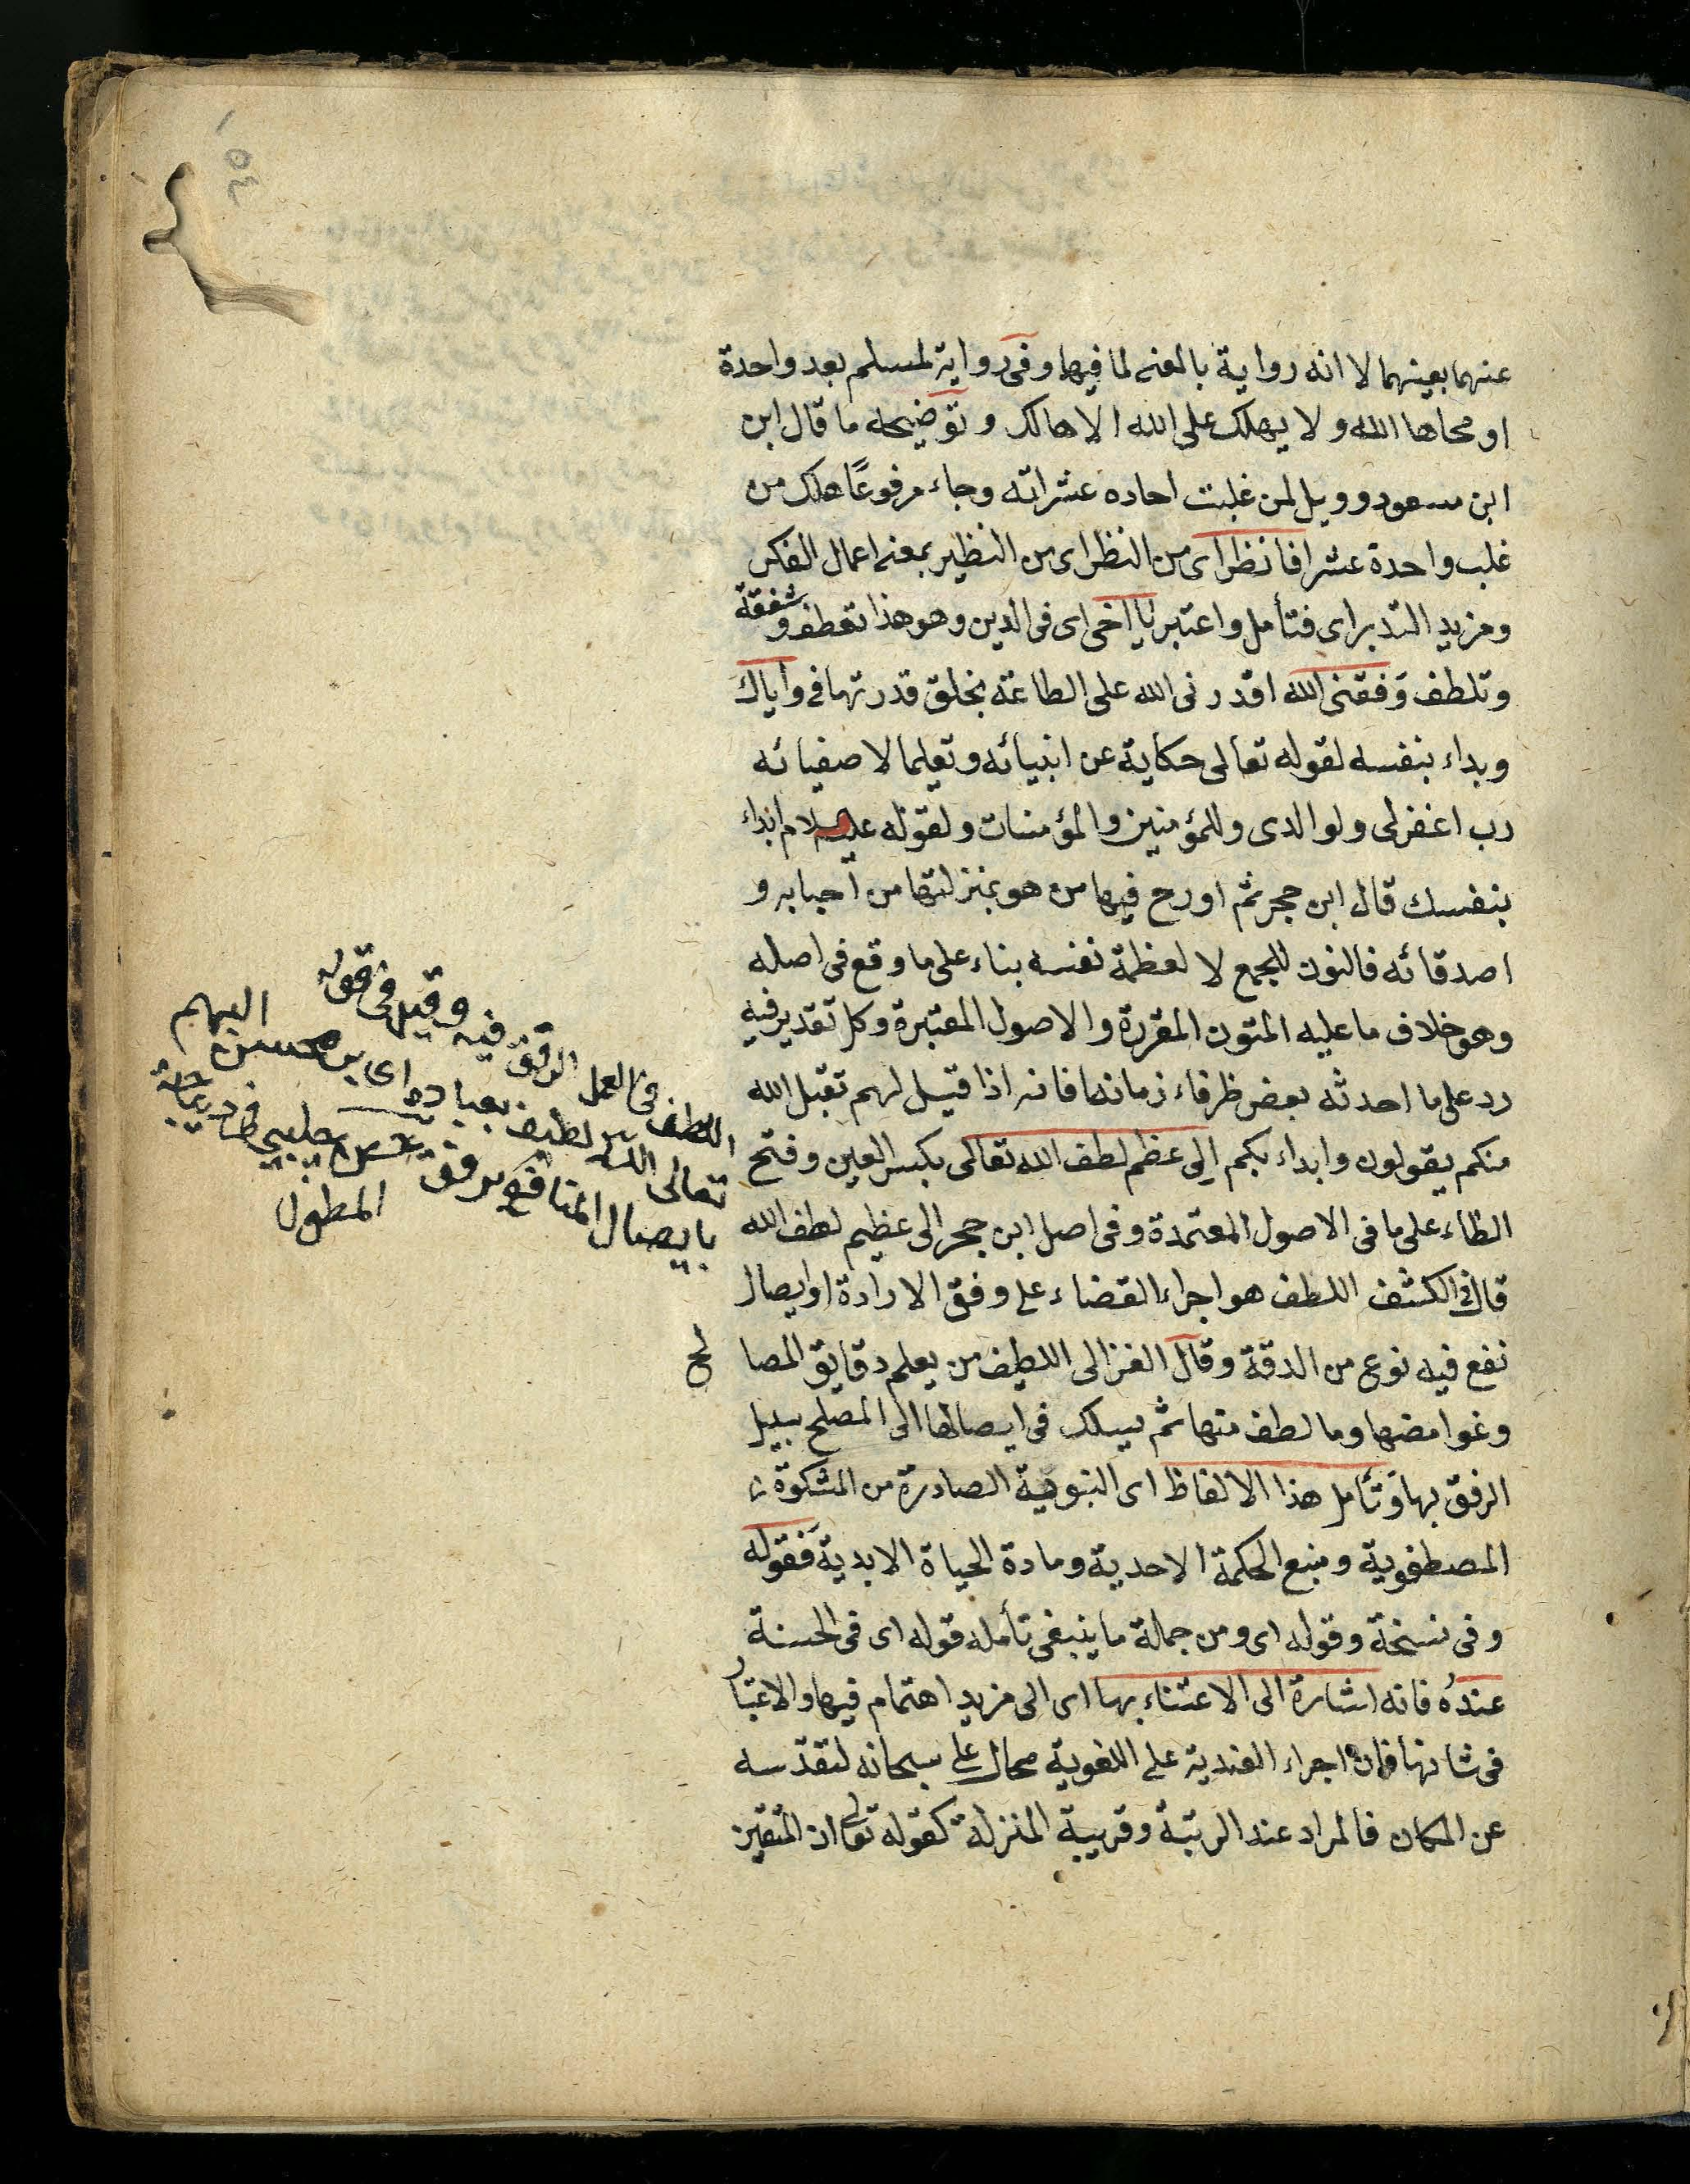 عنهما بعينهما لا انه رواية بالمعنى لما فيها وفى رواية لمسلم بعد واحدة
او محاها الله ولا يهلك على الله الا هالك وتوضيحه ما قال ابن
ابن مسعود وويل لمن غلبت احاده عشراته وجاء مرفوعًا هلك من
غلب واحدة عشرا فانظر اى من النظر اى من النظير بمعنى اعمال الفكر
ومزيد التدبر اى فتأمل واعتبر يا اخى اى فى الدين وهو هذا تعطف وشفقة
وتلطف وفقنى الله اقدرنى الله على الطاعة بخلق قدرتها فى واياك
وبداء بنفسه لقوله تعالى حكاية عن انبيائه وتعليما لاصفيائه
رب اغفر لى ولوالدى وللمؤمنين والمؤمنات ولقوله عليه السلام ابداء
بنفسك قال ابن حجر ثم اورح فيها من هو بمنزلتها من احبابه و
اصدقائه فالنون للجمع لا لعظمة نفسه بناء على ما وقع فى اصله
وهو خلاف ما عليه المتون المقررة والاصول المعتبرة وكل تقدير فيه
رد على ما احدثه بعض ظرفاء زمانها فانه اذا قيل لهم تقبل الله
منكم يقولون وابداء بكم الى عظم لطف الله تعالى بكسر العين وفتح
الظاء على ما فى الاصول المعتمدة وفى اصل ابن حجر الى عظيم لطف الله
قال فى الكشف اللطف هو اجراء القضاء على وفق الارادة او ايصال
نفع فيه نوع من الدقة وقال الغزالى اللطيف من يعلم دقايق المصا
لح
وغوامضها وما لطف منها ثم يسلك فى ايصالها الى المصلح سبيل
الرفق بها وتأمل هذا الالفاظ اى النبوية الصادرة من المشكوة
المصطفوية ومنبع الحكمة الاحدية ومادة الحياة الابدية فقوله
وفى نسخة وقوله اى ومن جملة ما ينبغى تأمله قوله اى فى الحسنة
عندهُ فانه اشارة الى الاعتناء بها اى الى مزيد اهتمام فيها والاعتبار
فى شانها فان اجراء العندية على اللغوية محال على سبحانه لتقدسه
عن المكان فالمراد عند الرتبة وقريبة المنزلة كقوله تعالى ان المتقين
اللطف فى العمل الرفق فيه وقيل فى قوله
تعالى الله لطيف بعباده اى محسن اليهم
بايصال المنافع برفق حسن چلبى فى ديباجة
المطول